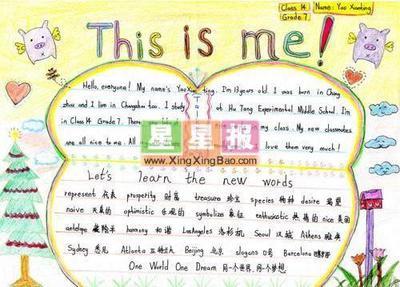 Class 14
Name: Yao Xianting
Grade 7
This is me!
Hello, everyone! My name's Yao Xianting. I'm 13 years old. I was born in Chang
zhou and I live in Changzhou too. I study at Hu Tang Experimental Middle School. I'm
in Class 14 Grade 7. There in my class. My new classmates
are all nice to me. All love them very much!
星星报
www.XingXingBao.com
Let's learn the new words
represent 代表 prosperity 财富 treasure 珍宝 species 物种 desire 渴望
naive 天真的 optimistic 乐观的 symbolize 象征 enthusiastic 热情的 nice 美丽
antelope 藏羚羊 harmony 和谐 Los Angeles 洛杉机 Seoul 汉城 Athens 雅典
Sydney 悉尼 Atlanta 亚特兰大 Beijing 北京 slogans 口号 Barcelona
One World One Dream 同一个世界, 同一个梦想